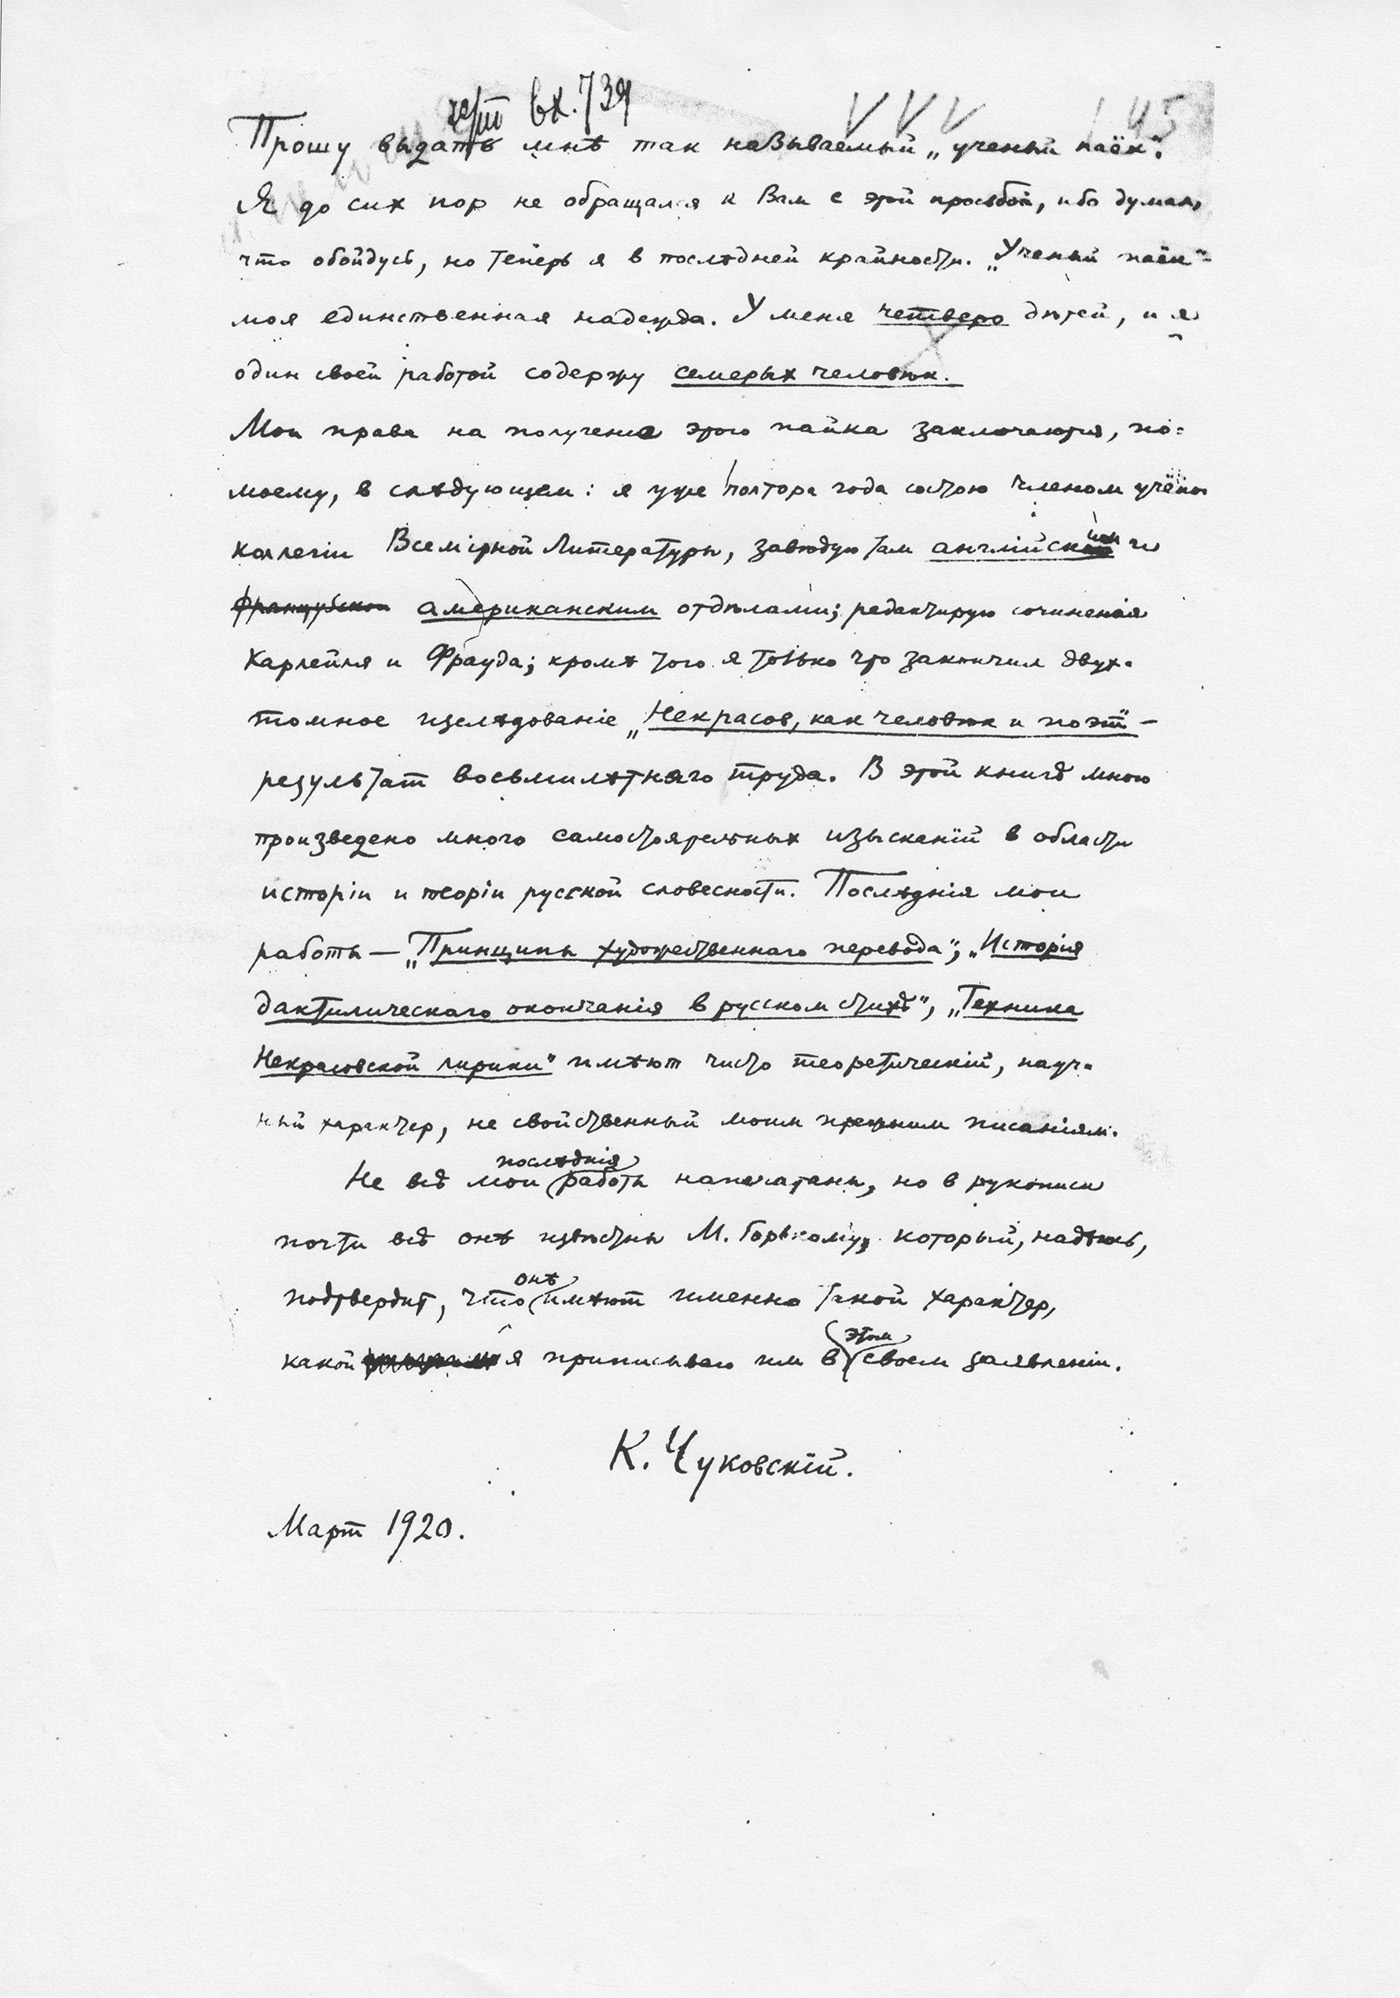 вх. 739
145
Прошу выдать мнѣ так называемый „ученый паёк".
Я до сих пор не обращался к Вам с этой просьбой, ибо думал,
что обойдусь, но теперь я в послѣдней крайности. „Ученый паёк" –
моя единственная надежда. У меня четверо дѣтей, и я
один своей работой содержу семерых человѣк.
Мои права на получение этого пайка заключаются, по-
моему, в слѣдующем: я уже полтора года состою членом учёной
коллегіи Всемірной Литературы, завѣдую там англійским и
французском американским отдѣлами; редактирую сочиненія
Карлейля и Фрауда; кромѣ того я только что закончил двух-
томное изслѣдованіе „Некрасов, как человѣк и поэт" –
результат восьмилѣтняго труда. В этой книгѣ мною
произведено много самостоятельных изысканій в области
исторіи и теоріи русской словесности. Послѣднія мои
работы — „Принципы художественнаго перевода"; „Исторія
дактилическаго окончанія в русском стихѣ", „Техника
Некрасовской лирики" имѣют чисто теоретическій, науч-
ный характер, не свойственный моим прежним писаніям.
Не всѣ мои послѣднія работы напечатаны, но в рукописи
почти всѣ онѣ извѣстны М. Горькому, который, надѣюсь,
подтвердит, что онѣ имѣют именно такой характер,
какой я приписываю им в этом своем заявленіи.
К. Чуковскій.
Март 1920.